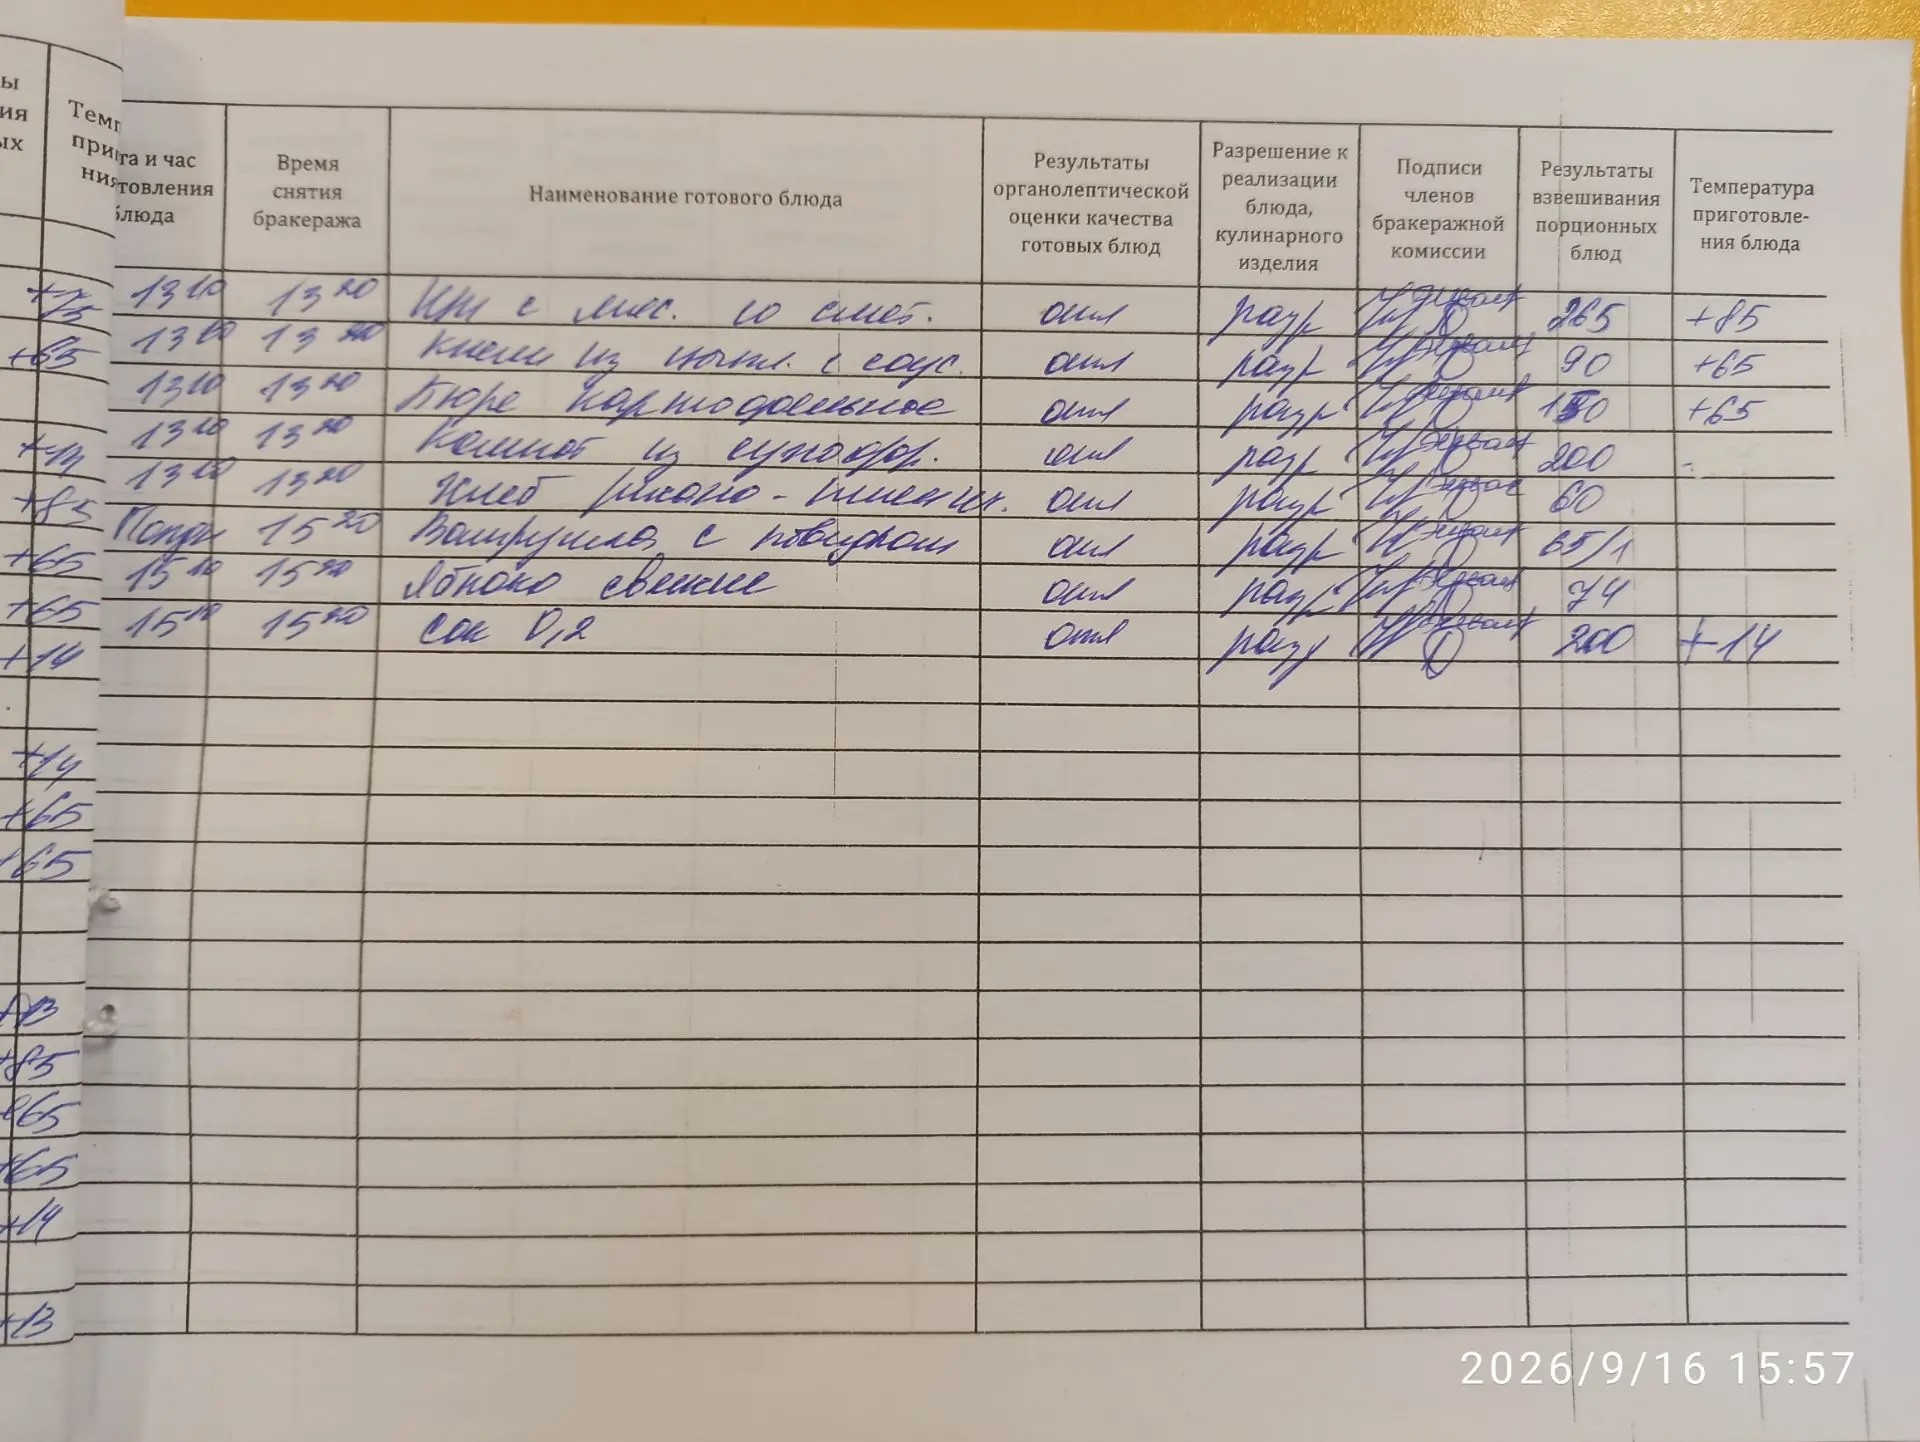 ы
ия
ых
Темп
при
ния
та и час
товления
блюда
Время
снятия
бракеража
Наименование готового блюда
Результаты
органолептической
оценки качества
готовых блюд
Разрешение к
реализации
блюда,
кулинарного
изделия
Подписи
членов
бракеражной
комиссии
Результаты
взвешивания
порционных
блюд
Температура
приготовле-
ния блюда
13 10 13 20 Щи с мяс. со смет. отл разр 265 +85
13 10 13 20 из с соус. отл разр 90 +65
13 10 13 20 Пюре картофельное отл разр 150 +65
13 10 13 20 Компот из сухофр. отл разр 200
13 10 13 20 Хлеб ржано-пшеничн. отл разр 60
15 20 Ватрушка с повидлом отл разр 65/1
15 10 15 20 Яблоко свежие отл разр 74
15 10 15 20 Сок 0,2 отл разр 200 +14
+75
+65
+14
+85
+65
+65
+14
+14
+65
+65
+85
+65
+65
+14
+13
2026/9/16 15:57